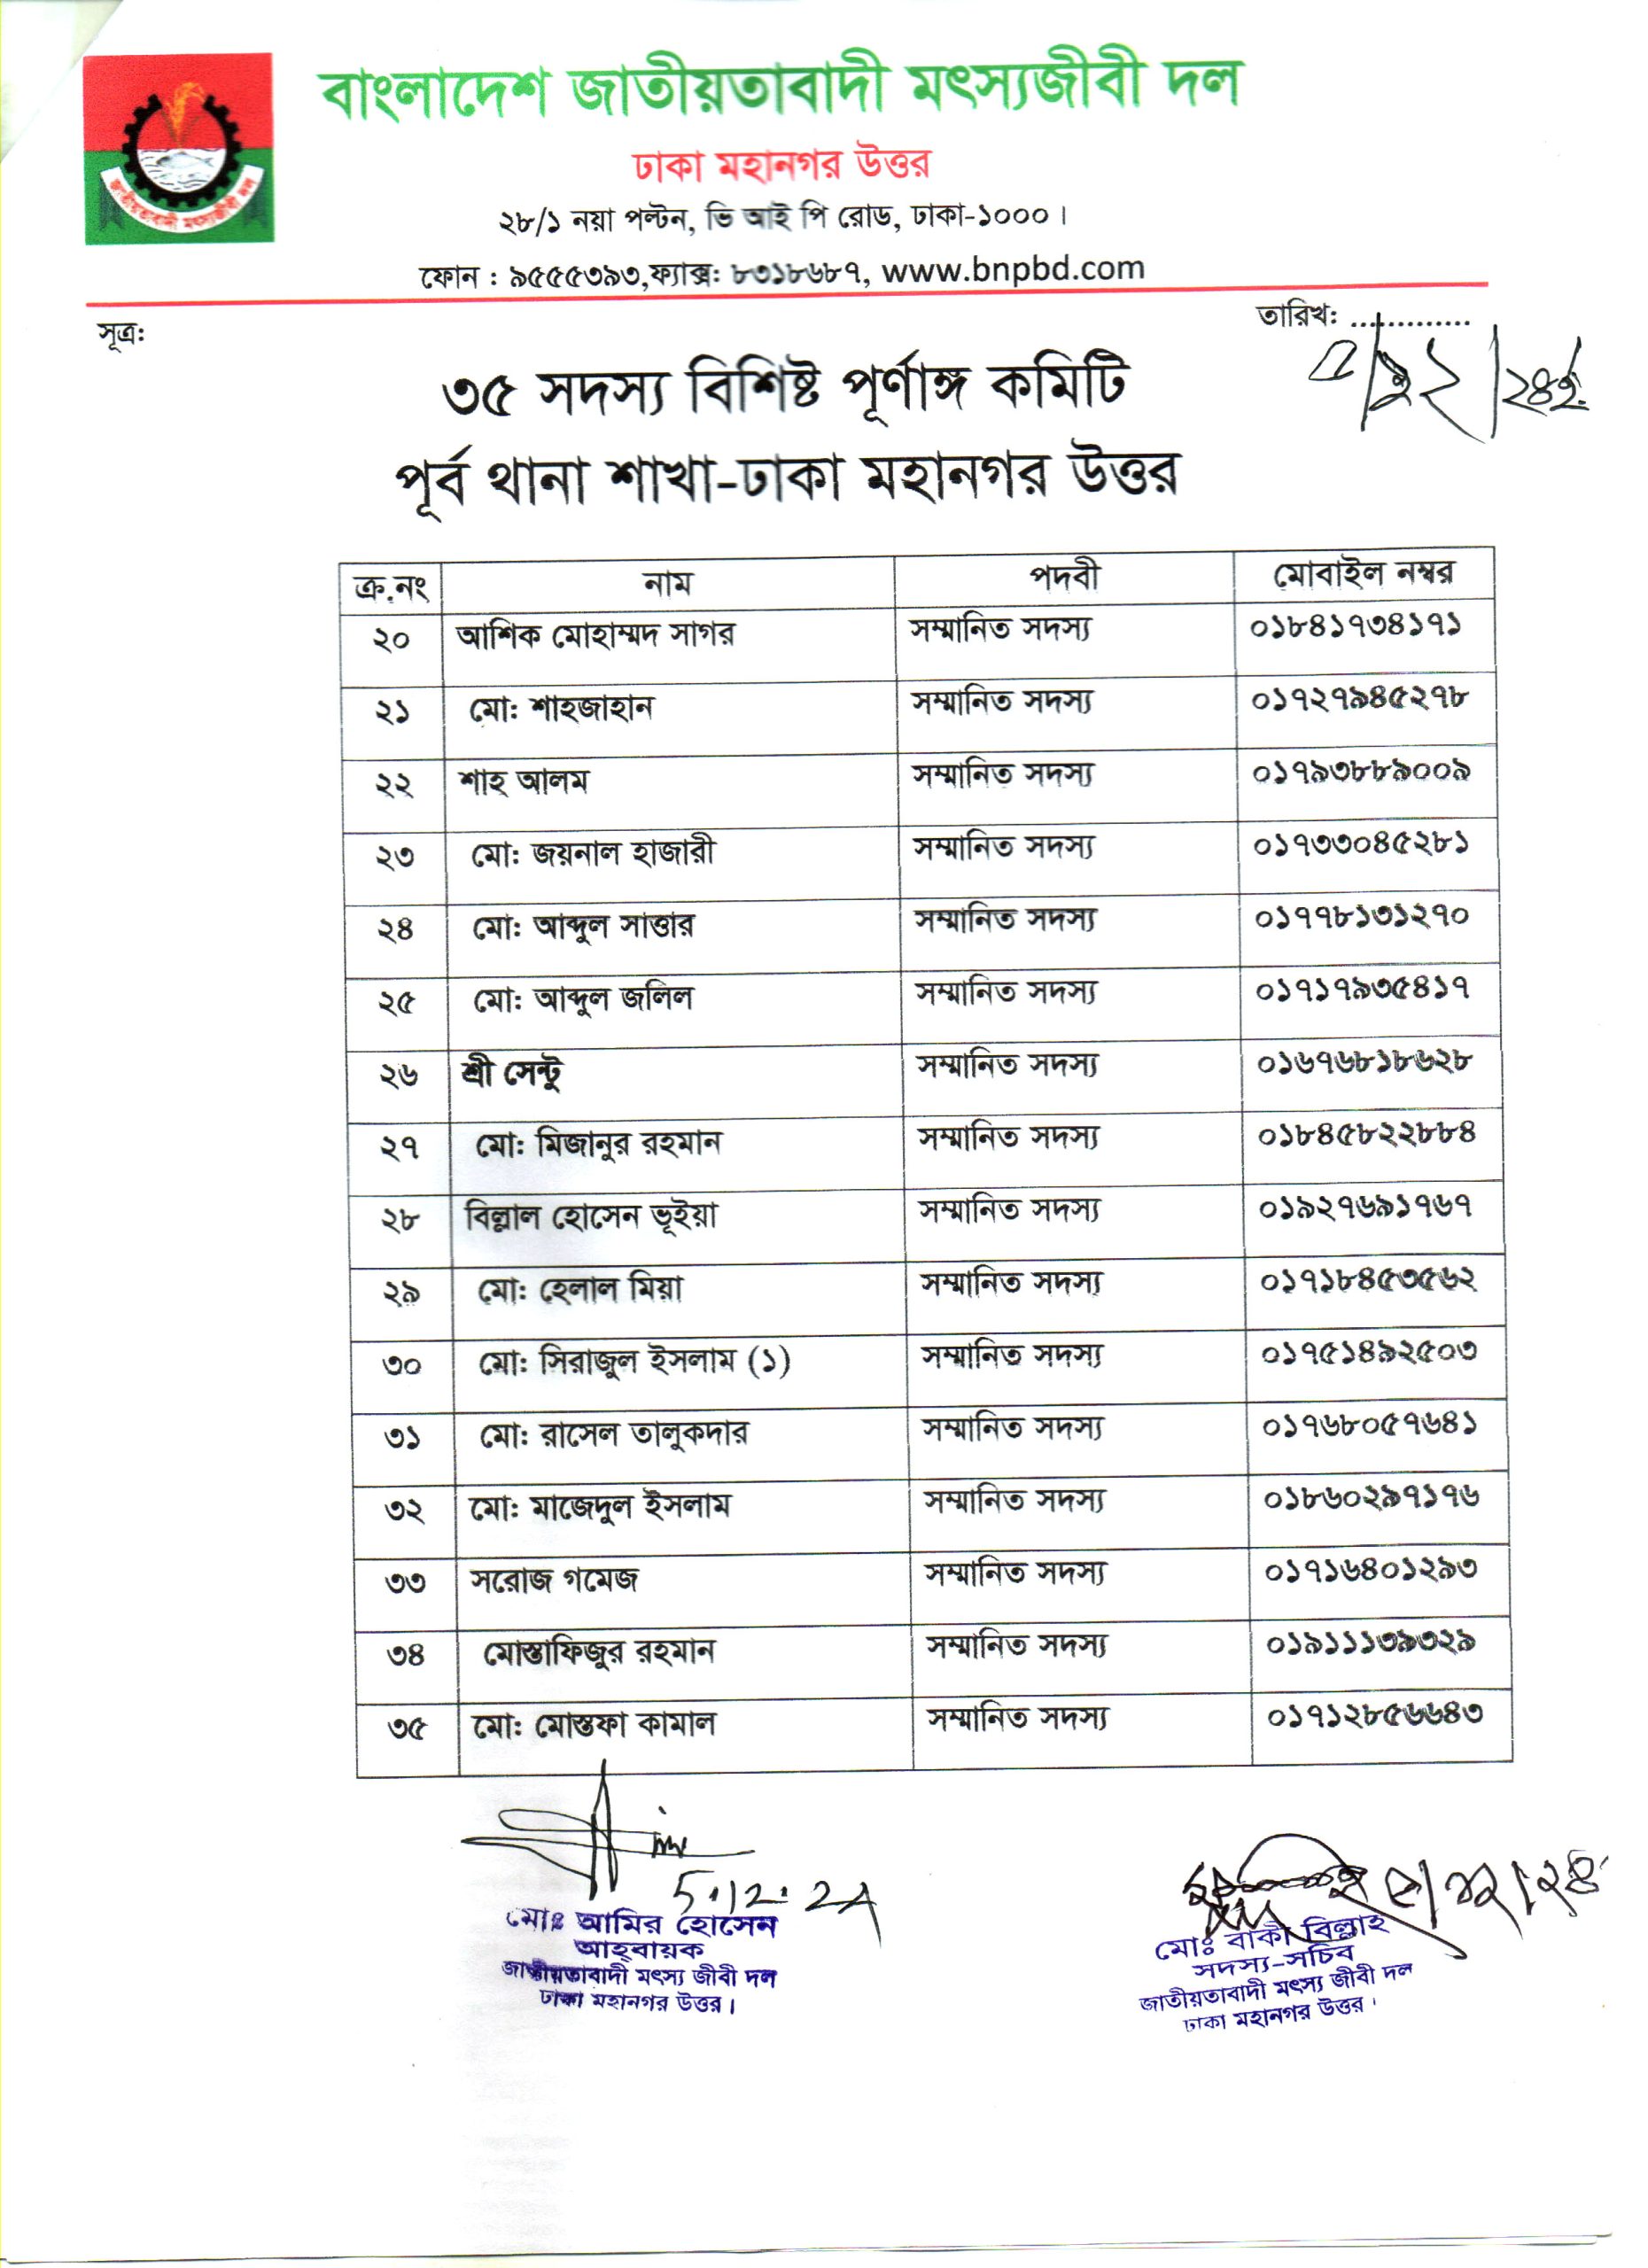 বাংলাদেশ জাতীয়তাবাদী মৎস্যজীবী দল
ঢাকা মহানগর উত্তর
২৮/১ নয়া পল্টন, ভি আই পি রোড, ঢাকা-১০০০।
ফোন : ৯৫৫৫৩৯৩,ফ্যাক্স: ৮৩১৮৬৮৭, www.bnpbd.com
জাতীয়তাবাদী মৎস্যজীবী দল
সূত্র:
তারিখ: .............
৩৫ সদস্য বিশিষ্ট পূর্ণাঙ্গ কমিটি
পূর্ব থানা শাখা-ঢাকা মহানগর উত্তর
ক্র.নং নাম পদবী মোবাইল নম্বর
২০ আশিক মোহাম্মদ সাগর সম্মানিত সদস্য ০১৮৪১৭৩৪১৭১
২১ মো: শাহজাহান সম্মানিত সদস্য ০১৭২৭৯৪৫২৭৮
২২ শাহ আলম সম্মানিত সদস্য ০১৭৯৩৮৮৯০০৯
২৩ মো: জয়নাল হাজারী সম্মানিত সদস্য ০১৭৩৩০৪৫২৮১
২৪ মো: আব্দুল সাত্তার সম্মানিত সদস্য ০১৭৭৮১৩১২৭০
২৫ মো: আব্দুল জলিল সম্মানিত সদস্য ০১৭১৭৯৩৫৪১৭
২৬ শ্রী সেন্টু সম্মানিত সদস্য ০১৬৭৬৮১৮৬২৮
২৭ মো: মিজানুর রহমান সম্মানিত সদস্য ০১৮৪৫৮২২৮৮৪
২৮ বিল্লাল হোসেন ভূইয়া সম্মানিত সদস্য ০১৯২৭৬৯১৭৬৭
২৯ মো: হেলাল মিয়া সম্মানিত সদস্য ০১৭১৮৪৫৩৫৬২
৩০ মো: সিরাজুল ইসলাম (১) সম্মানিত সদস্য ০১৭৫১৪৯২৫০৩
৩১ মো: রাসেল তালুকদার সম্মানিত সদস্য ০১৭৬৮০৫৭৬৪১
৩২ মো: মাজেদুল ইসলাম সম্মানিত সদস্য ০১৮৬০২৯৭১৭৬
৩৩ সরোজ গমেজ সম্মানিত সদস্য ০১৭১৬৪০১২৯৩
৩৪ মোস্তাফিজুর রহমান সম্মানিত সদস্য ০১৯১১১৩৯৩২৯
৩৫ মো: মোস্তফা কামাল সম্মানিত সদস্য ০১৭১২৮৫৬৬৪৩
5.12.24
মোঃ আমির হোসেন
আহ্বায়ক
জাতীয়তাবাদী মৎস্য জীবী দল
ঢাকা মহানগর উত্তর।
মোঃ বাকী বিল্লাহ
সদস্য-সচিব
জাতীয়তাবাদী মৎস্য জীবী দল
ঢাকা মহানগর উত্তর।